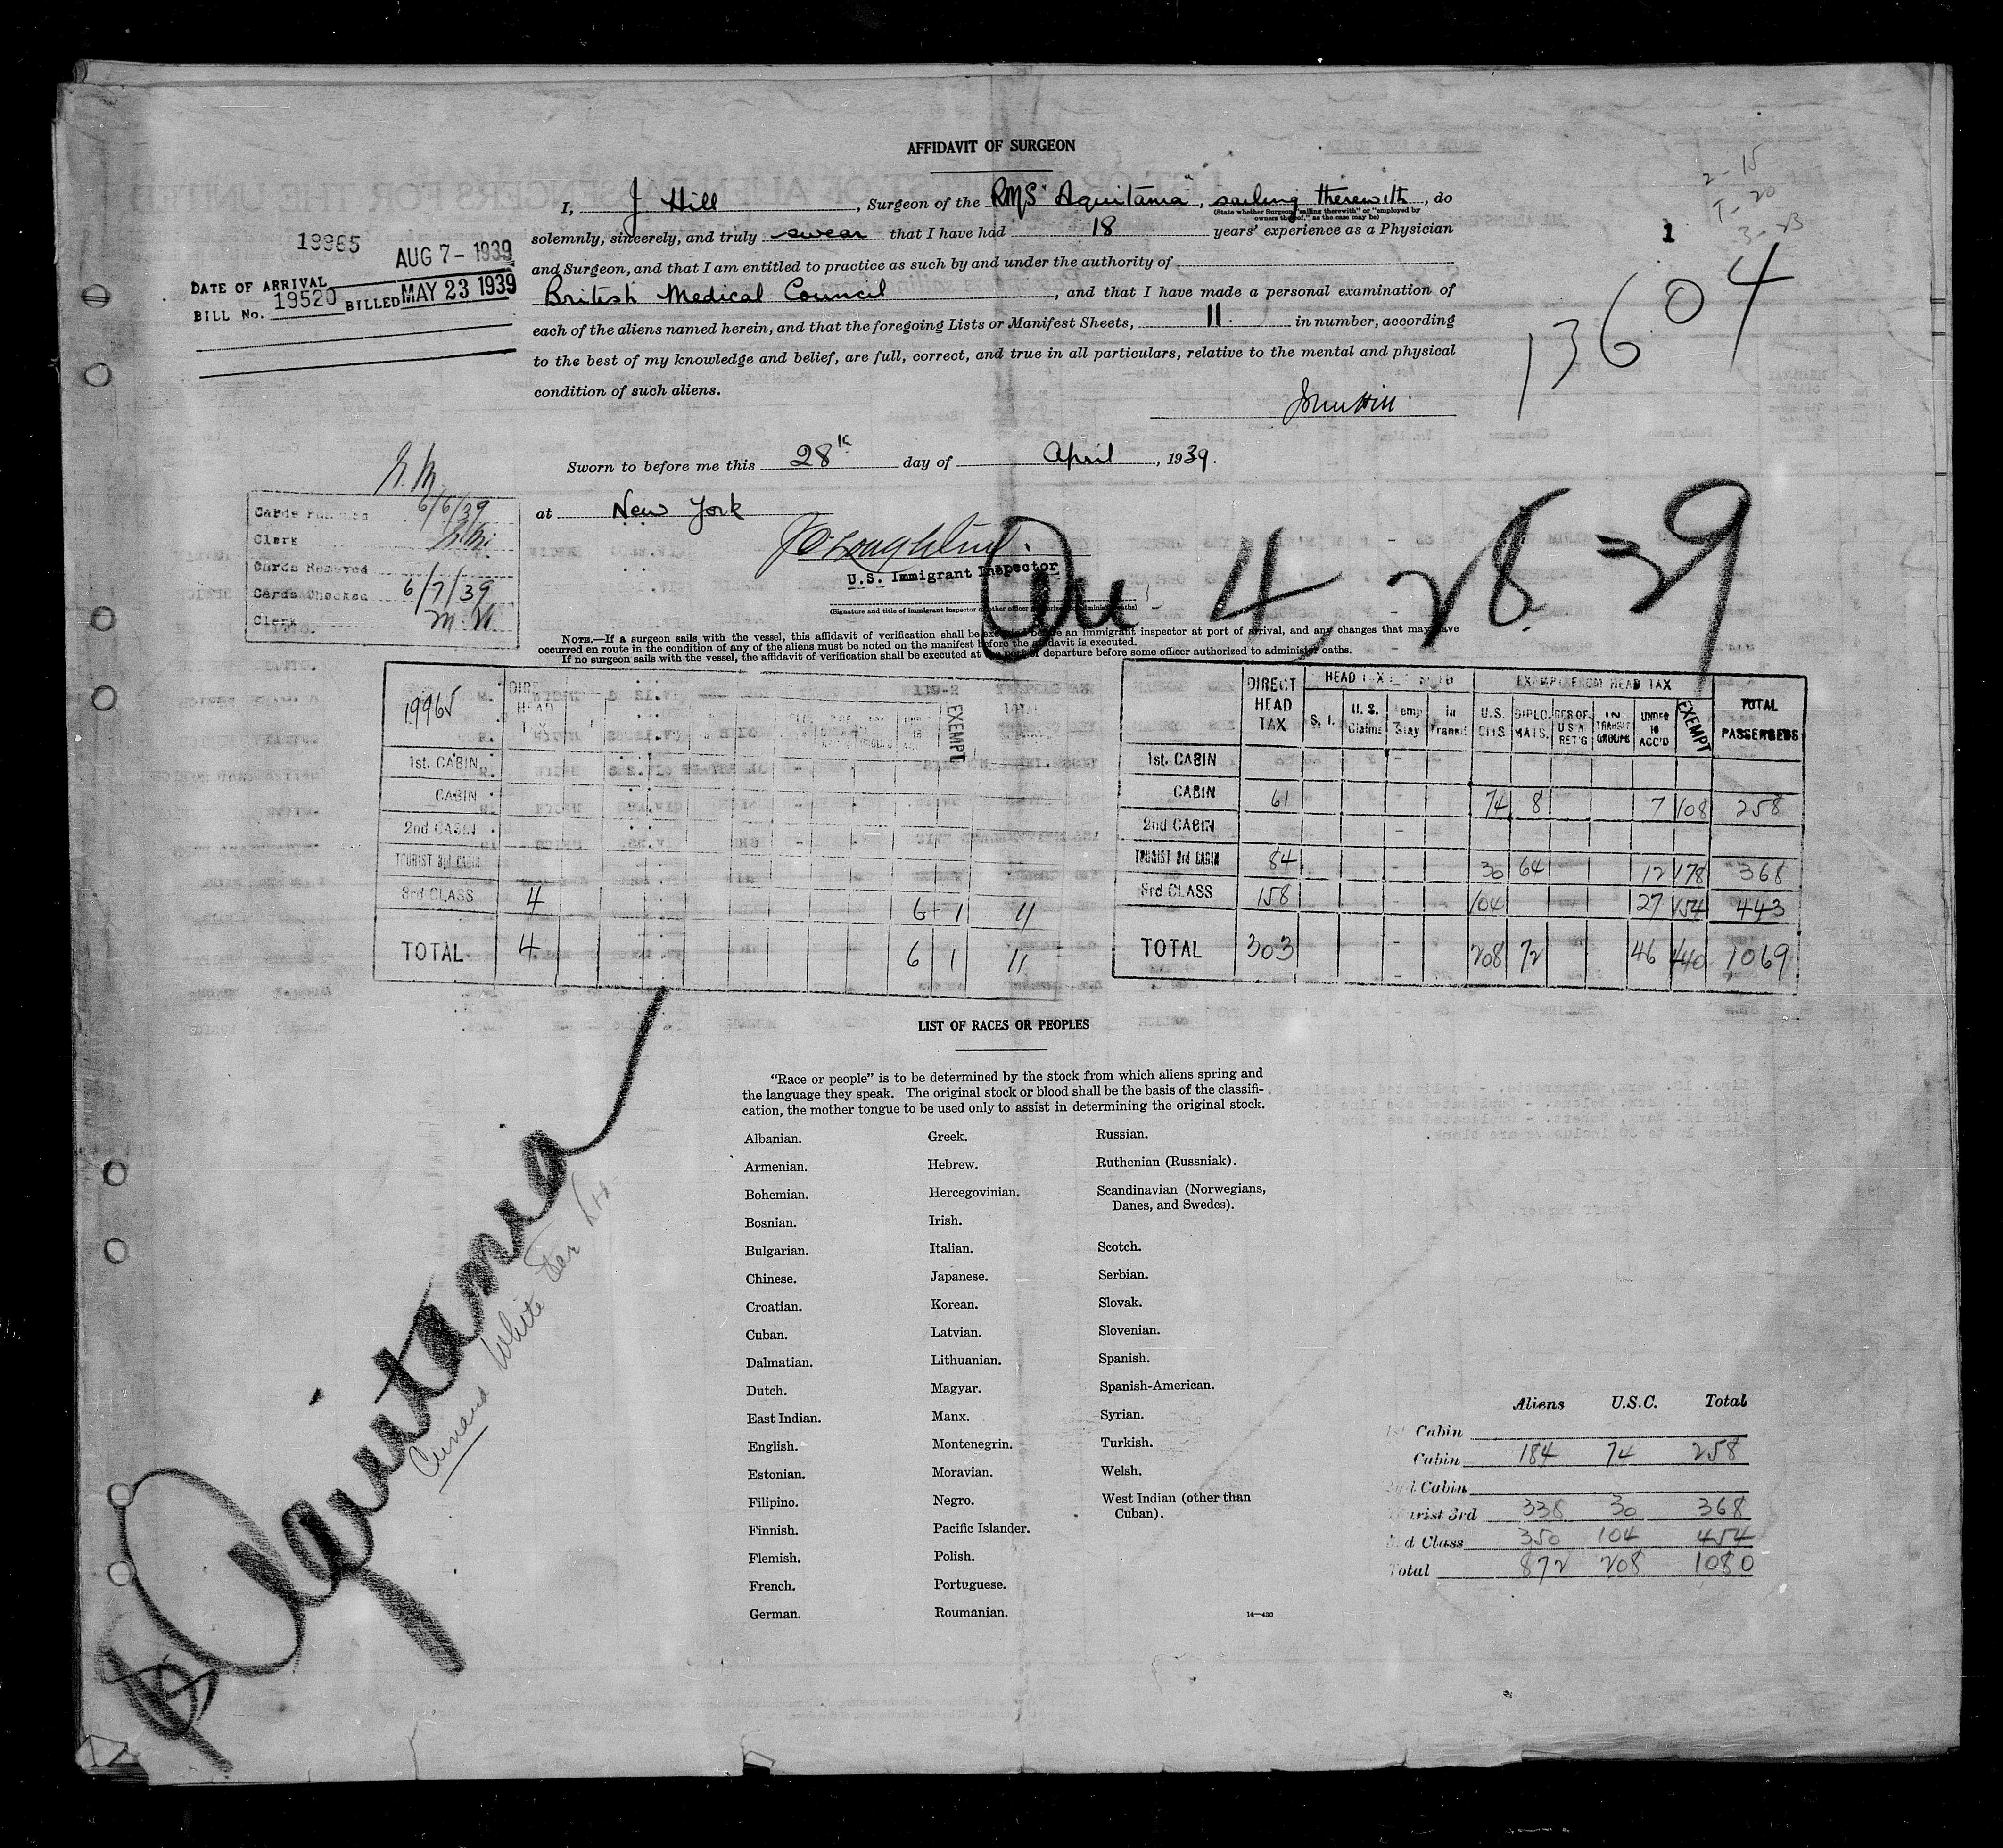 AFFIDAVIT OF SURGEON
I, J Hill, Surgeon of the RMS "Aquitania", sailing therewith, do
(State whether Surgeon "sailing therewith" or "employed by
owners thereof," as the case may be)
solemnly, sincerely, and truly swear that I have had 18 years' experience as a Physician
and Surgeon, and that I am entitled to practice as such by and under the authority of
British Medical Council, and that I have made a personal examination of
each of the aliens named herein, and that the foregoing Lists or Manifest Sheets, 11. in number, according
to the best of my knowledge and belief, are full, correct, and true in all particulars, relative to the mental and physical
condition of such aliens.
John Hill
19965 AUG 7 - 1939
DATE OF ARRIVAL
BILL No. 19520 BILLED MAY 23 1939
2-15
T-20
3-23
1
13604
Sworn to before me this 28th day of April, 1939.
at New York
U.S. Immigrant Inspector
(Signature and title of immigrant inspector or other officer authorized to administer oaths)
6/6/39
Clerk
Cards Removed
Cards Checked 6/7/39
Clerk
4 28 = 39
NOTE.—If a surgeon sails with the vessel, this affidavit of verification shall be executed before an immigrant inspector at port of arrival, and any changes that may have
occurred en route in the condition of any of the aliens must be noted on the manifest before the affidavit is executed.
If no surgeon sails with the vessel, the affidavit of verification shall be executed at the port of departure before some officer authorized to administer oaths.
19965 EXEMPT
1st. CABIN
CABIN
2nd CABIN
TOURIST 3rd CABIN
3rd CLASS 4 6 1 11
TOTAL 4 6 1 11
DIRECT HEAD TAX HEAD TAX EXEMPT FROM HEAD TAX TOTAL PASSENGERS
S. I. U. S. Claims Temp Stay in Transit U.S. CITS. DIPLO-MATS. GER OF. U S A RET'G IN TRANSIT GROUPS UNDER 16 ACC'D EXEMPT
1st. CABIN
CABIN 61 74 8 7 108 258
2nd CABIN
TOURIST 3rd CABIN 84 30 64 12 178 368
3rd CLASS 158 104 27 154 443
TOTAL 303 208 72 46 440 1069
LIST OF RACES OR PEOPLES
"Race or people" is to be determined by the stock from which aliens spring and
the language they speak. The original stock or blood shall be the basis of the classifi-
cation, the mother tongue to be used only to assist in determining the original stock.
Albanian.
Armenian.
Bohemian.
Bosnian.
Bulgarian.
Chinese.
Croatian.
Cuban.
Dalmatian.
Dutch.
East Indian.
English.
Estonian.
Filipino.
Finnish.
Flemish.
French.
German.
Greek.
Hebrew.
Hercegovinian.
Irish.
Italian.
Japanese.
Korean.
Latvian.
Lithuanian.
Magyar.
Manx.
Montenegrin.
Moravian.
Negro.
Pacific Islander.
Polish.
Portuguese.
Roumanian.
Russian.
Ruthenian (Russniak).
Scandinavian (Norwegians,
Danes, and Swedes).
Scotch.
Serbian.
Slovak.
Slovenian.
Spanish.
Spanish-American.
Syrian.
Turkish.
Welsh.
West Indian (other than
Cuban).
14—430
Aquitania
Cunard White Star
Aliens U.S.C. Total
1st Cabin
Cabin 184 74 258
2nd Cabin
Tourist 3rd 338 30 368
3rd Class 350 104 454
Total 872 208 1080